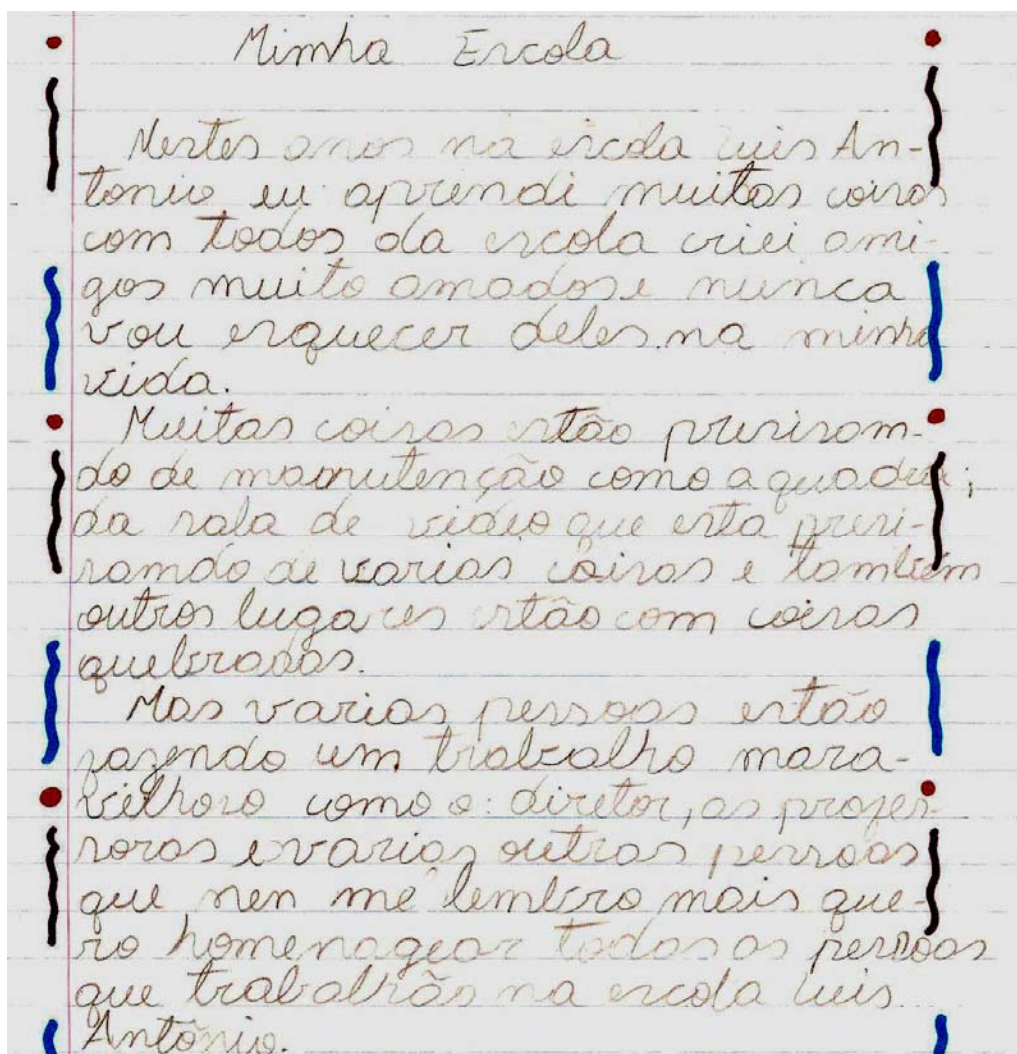 Minha Escola
Nestes anos na escola Luis An-
tonio eu aprendi muitas coisas
com todos da escola criei ami-
gos muito amados e nunca
vou esquecer deles na minha
vida.
Muitas coisas estão precisan-
do de manutenção como a quadra;
da sala de video que esta preci-
sando de varias coisas e também
outros lugares estão com coisas
quebradas.
Mas varias pessoas estão
fazendo um trabalho mara-
vilhoso como o: diretor, as profes-
soras e varias outras pessoas
que nen me lembro mais que-
ro homenagear todas as pessoas
que trabalhãs na escola Luis
Antônio.